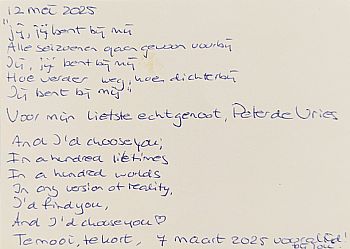 12 mei 2025
"Jij, jij bent bij mij
Alle seizoenen gaan gewoon voorbij
Jij, jij bent bij mij
Hoe verder weg, hoe dichterbij
Jij bent bij mij"
Voor mijn liefste echtgenoot, Peter de Vries
And I'd choose you;
In a hundred lifetimes
In a hundred worlds
In any version of reality,
I'd find you,
And I'd choose you ♡
Te mooi, te kort, 7 maart 2025 voor altijd!
bij jou!